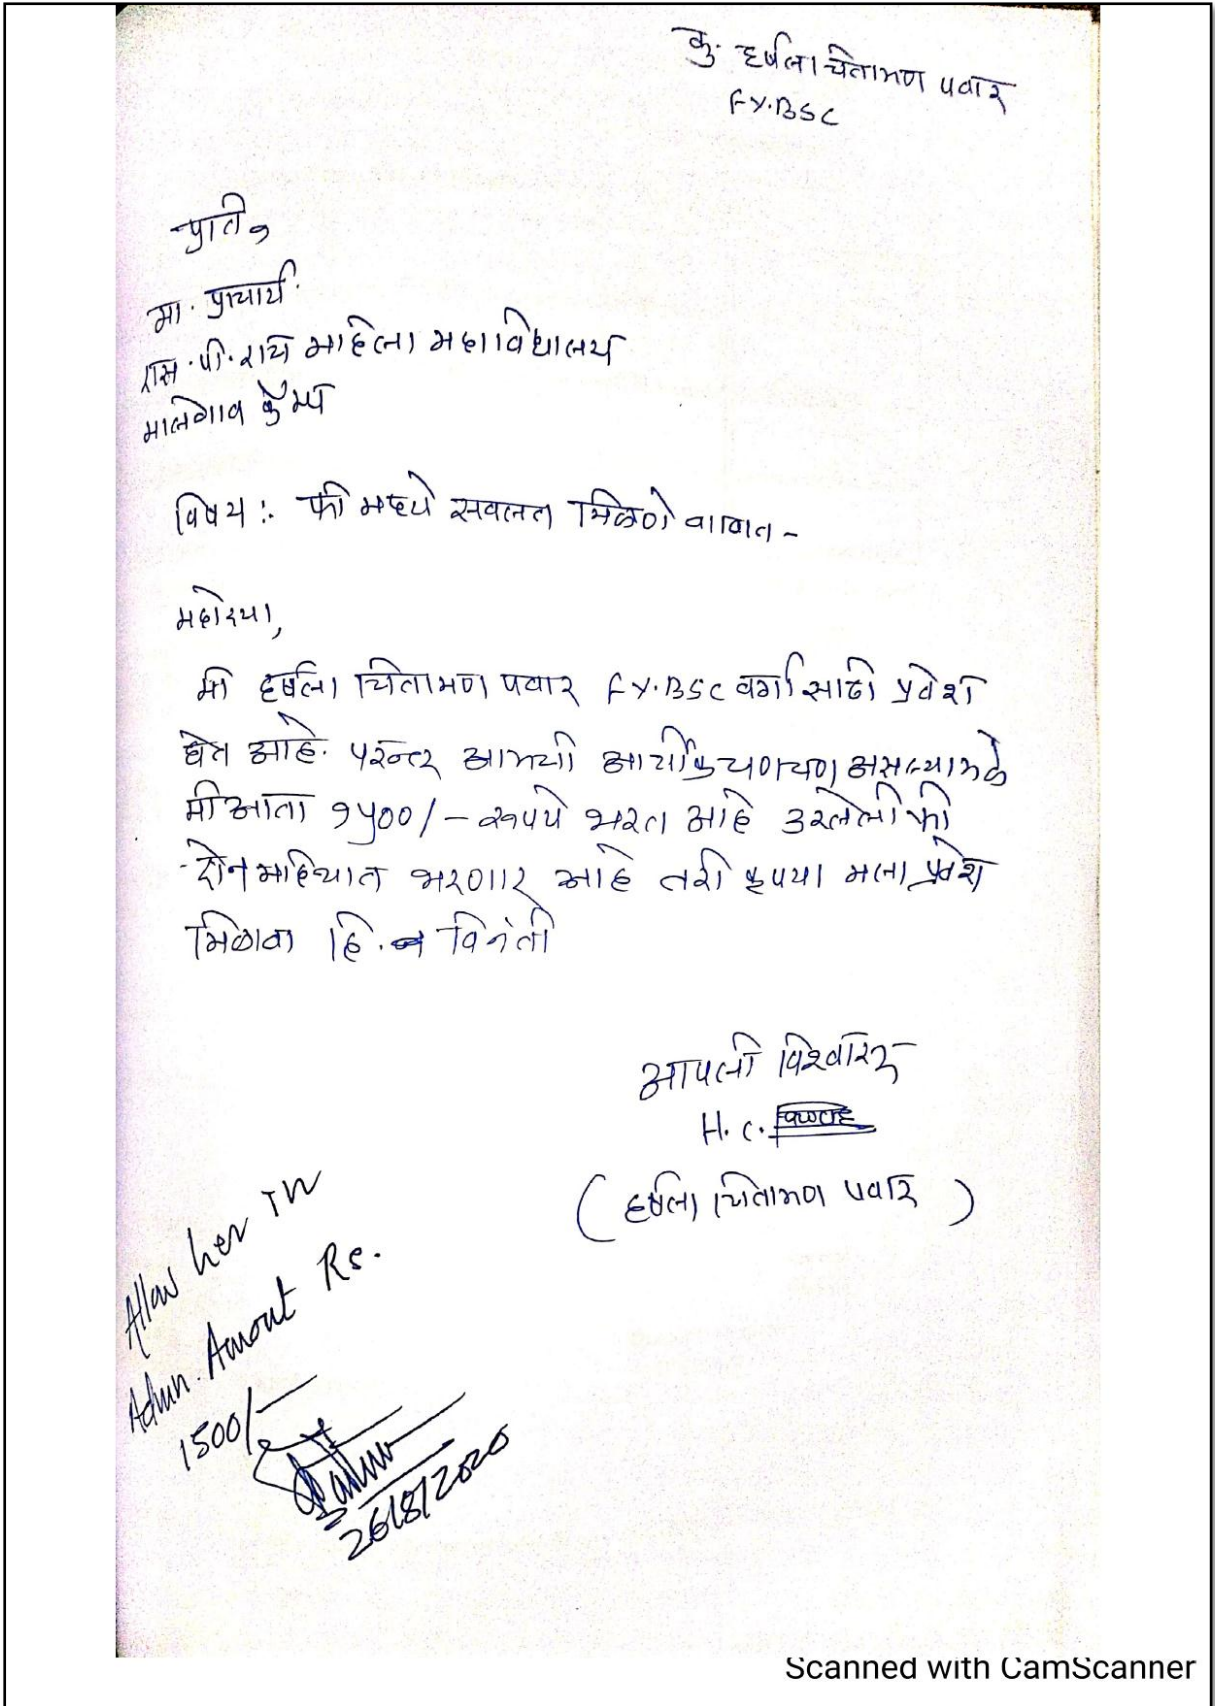 कु. हर्षला चिंतामण पवार
F.Y.BSC
प्रति,
मा. प्राचार्य.
एस. पी. राय महिला महाविद्यालय
मालेगाव कॅम्प
विषय :- फी मध्ये सवलत मिळणे बाबत -
महोदया,
मी हर्षला चिंतामण पवार F.Y.BSC वर्गासाठी प्रवेश
घेत आहे. परन्तु आमची आर्थीक चणचण असल्यामुळे
मी आता १५००/- रूपये भरत आहे उरलेली फी
दोन महिन्यात भरणार आहे तरी कृपया मला प्रवेश
मिळावा हि. विनंती
आपली विश्वासू
H. C.
( हर्षला चिंतामण पवार )
Allow her in
Admn. Amout Rs.
1500/-
26/8/2020
Scanned with CamScanner